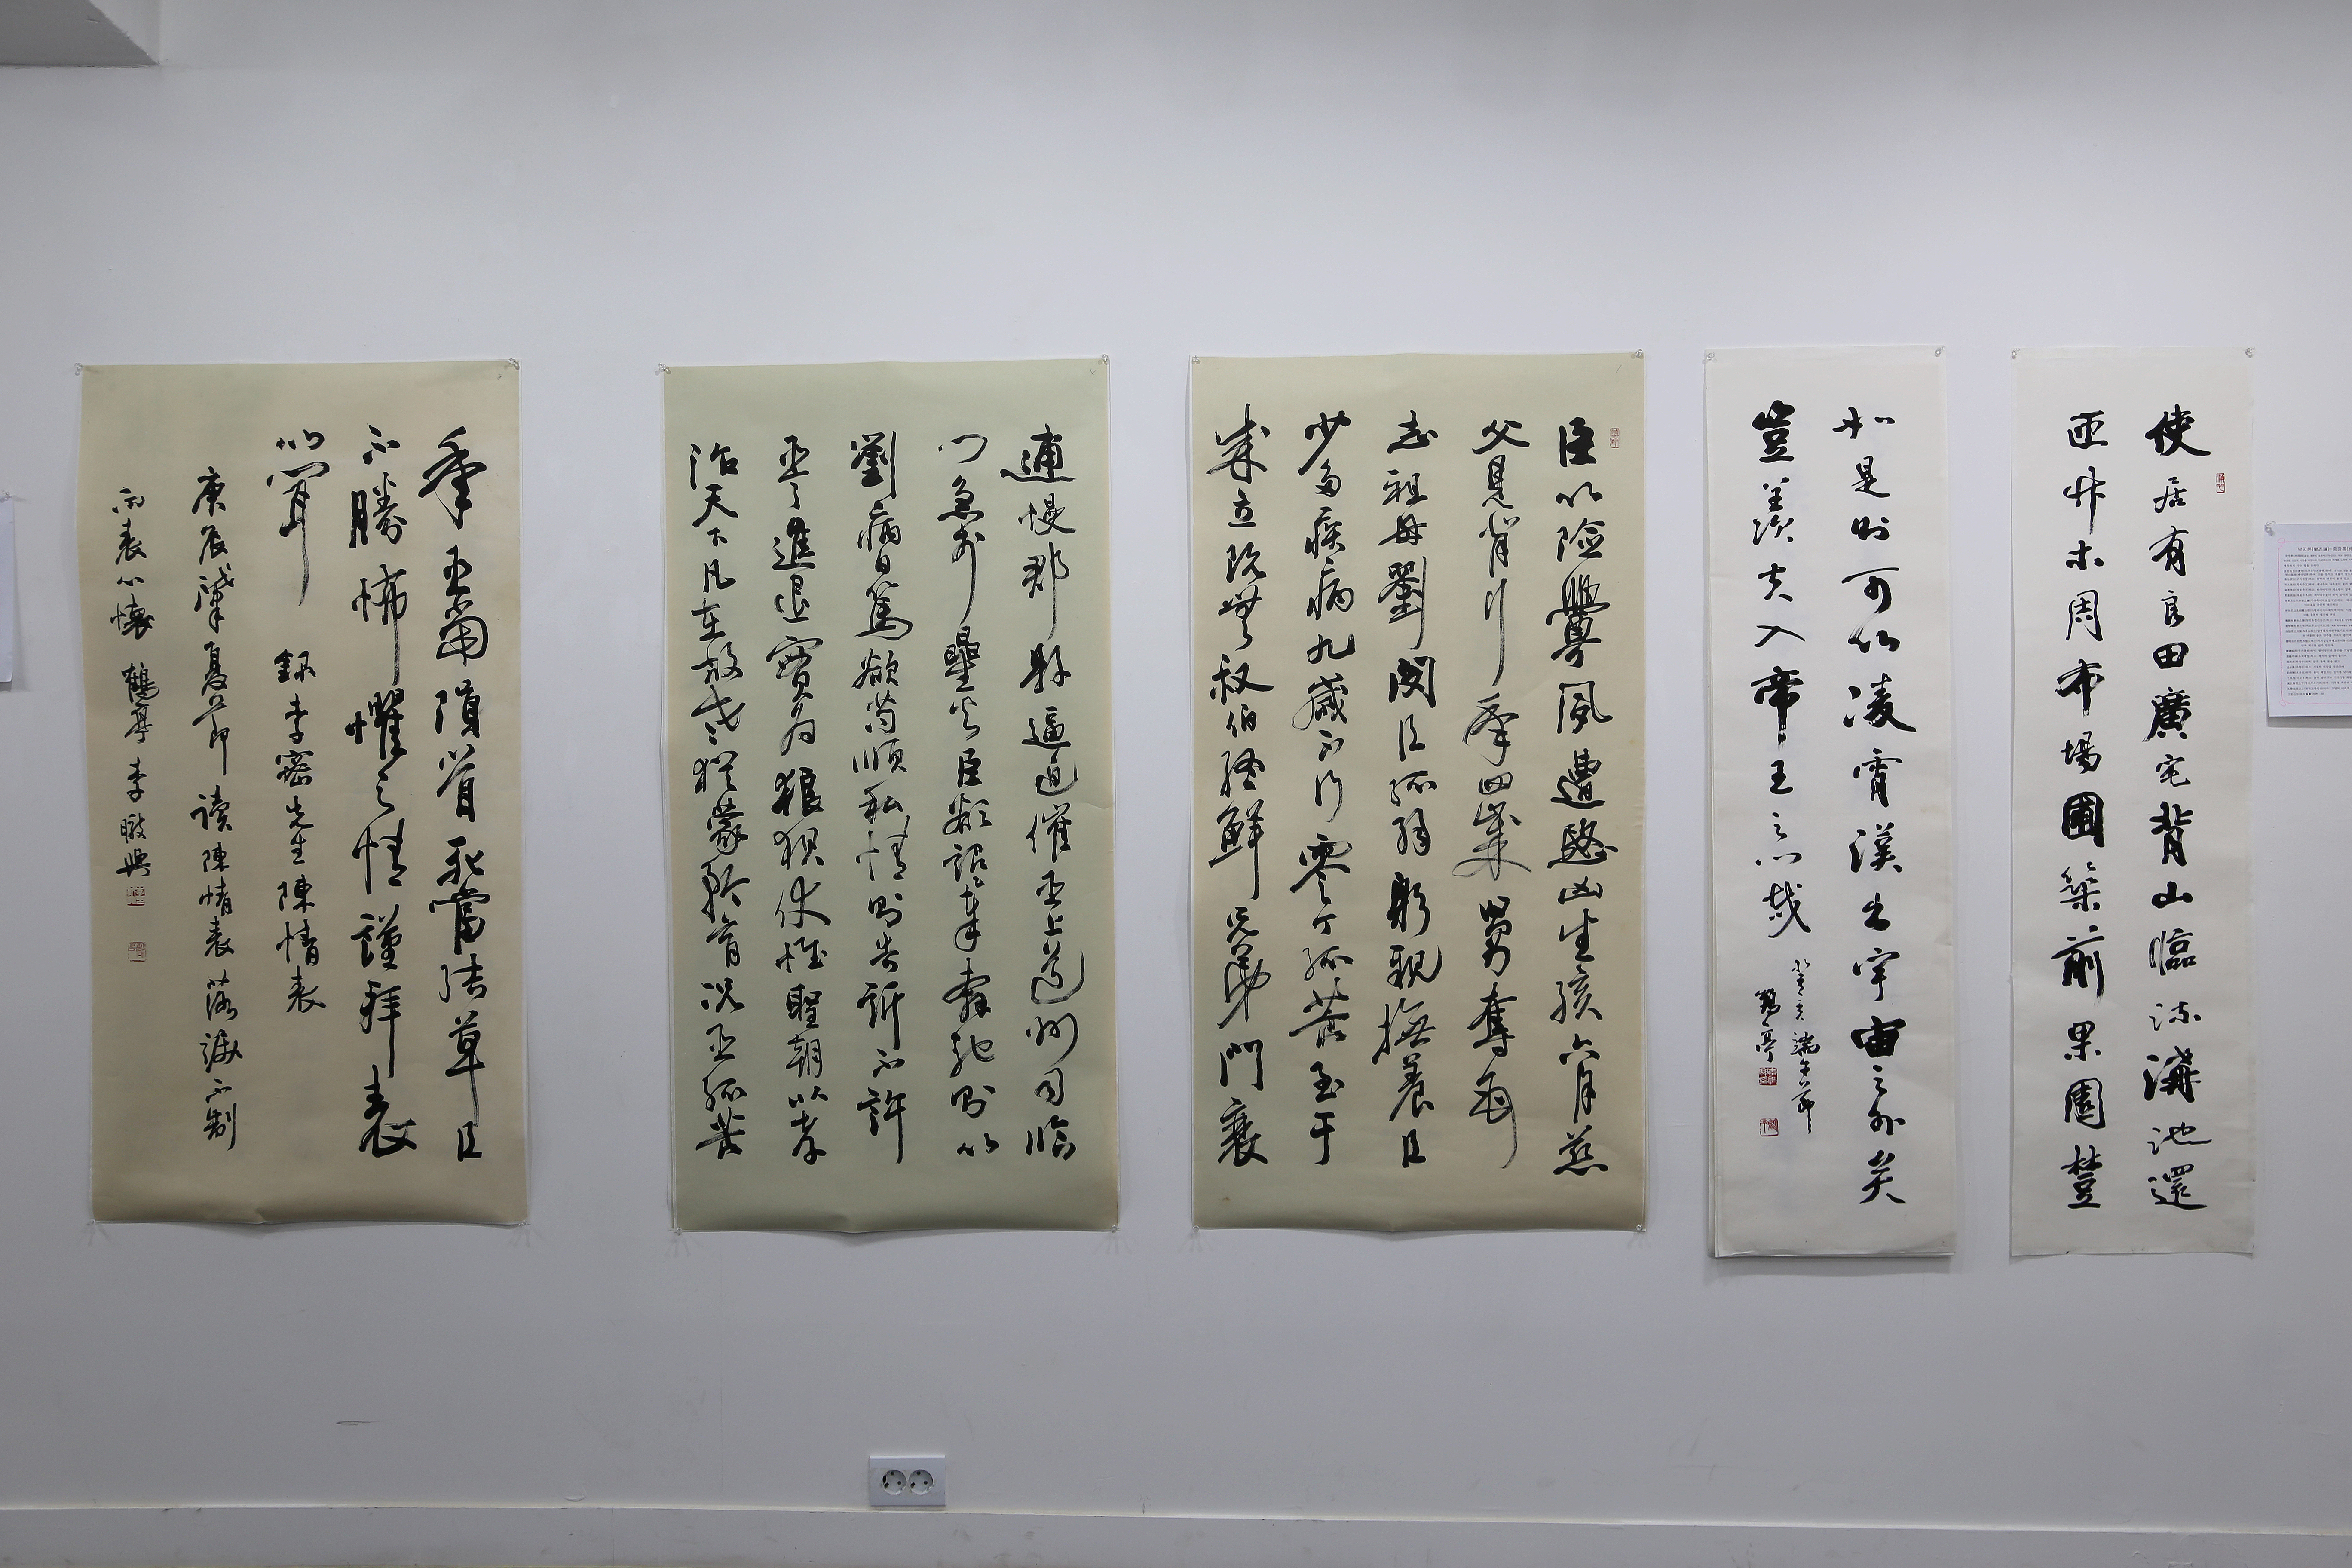 使居有良田廣宅背山臨流溝池還
匝竹木周布場圃築前果園
如是則可以凌霄漢出宇宙之外矣
豈羨夫入帝王之門哉
癸亥端午節
鶴亭
臣以險釁夙遭愍凶生孩六月慈
父見背行年四歲舅奪母
志祖母劉閔臣孤弱躬親撫養臣
少多疾病九歲不行零丁孤苦至于
成立既無叔伯終鮮兄弟門衰
逋慢郡縣逼迫催臣上道州司臨
門急於星火臣欲詔奉奔馳則以
劉病日篤欲苟順私情則告訴不許
臣之進退實為狼狽伏惟聖朝以孝
治天下凡在故老猶蒙矜育況臣孤苦
年臣當隕首死當結草臣
不勝怖懼之情謹拜表
以聞 錄李密先生陳情表
庚辰肇夏節 读陳情表落淚不制
而表心懷 鶴亭 李暾興